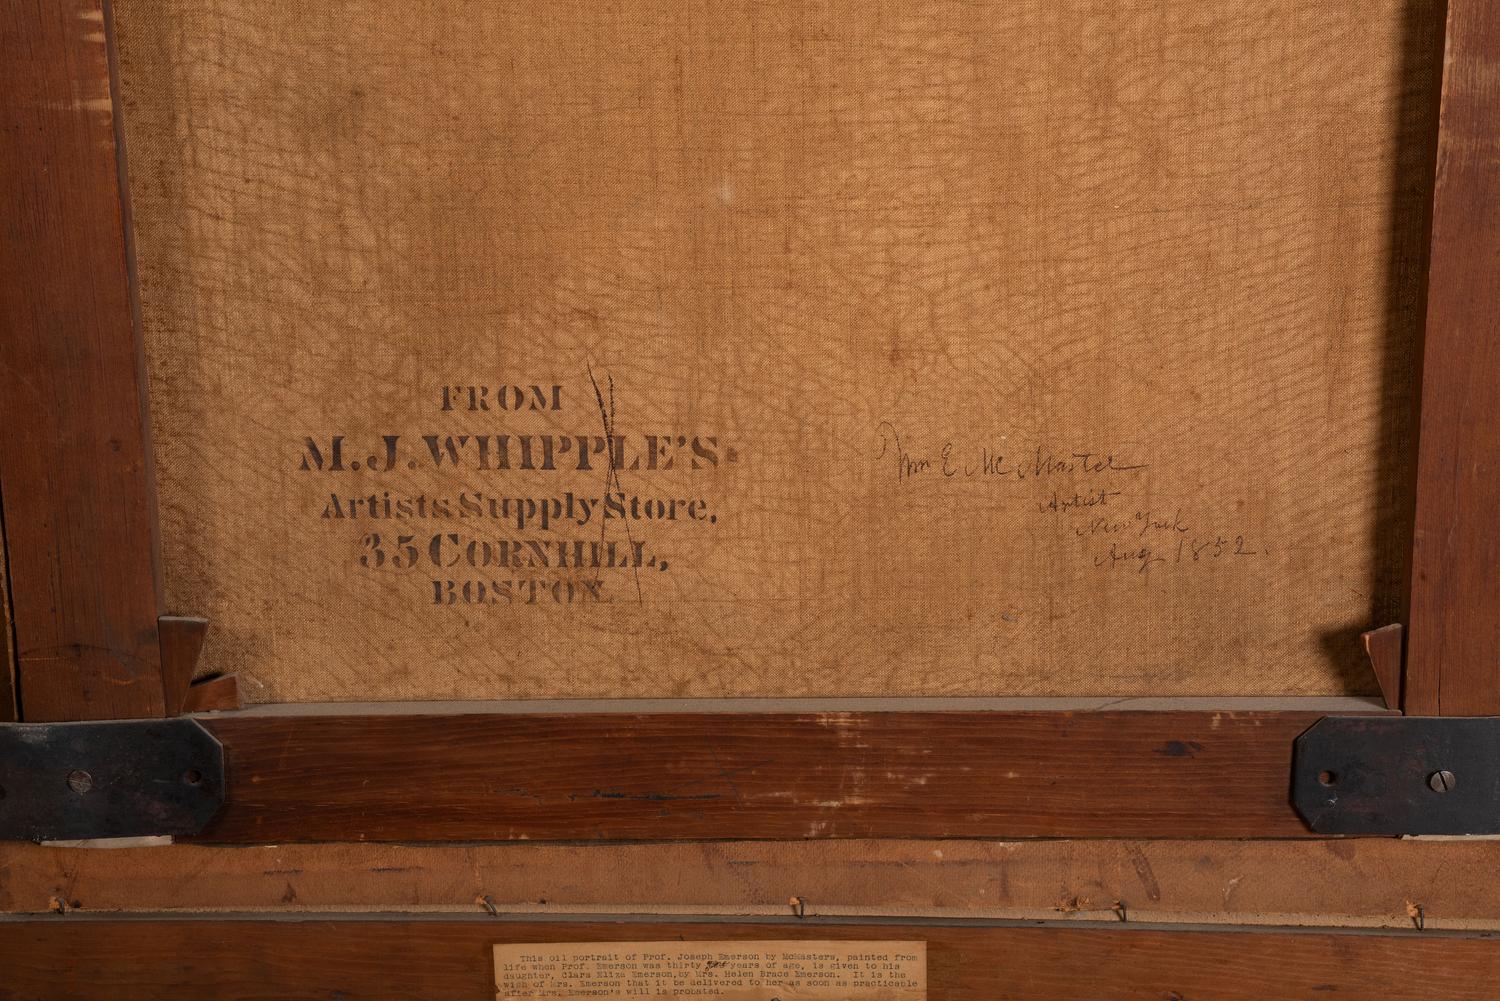 FROM
M.J.WHIPPLE'S
Artists Supply Store,
35 CORNHILL,
BOSTON
Wm E. McMaster
Artist
New York
Aug 1852.
This oil portrait of Prof. Joseph Emerson by McMasters, painted from
life when Prof. Emerson was thirty years of age, is given to his
daughter, Clara Eliza Emerson,by Mrs. Helen Brace Emerson. It is the
wish of Mrs. Emerson that it be delivered to her as soon as practicable
after Mrs. Emerson's will is probated.